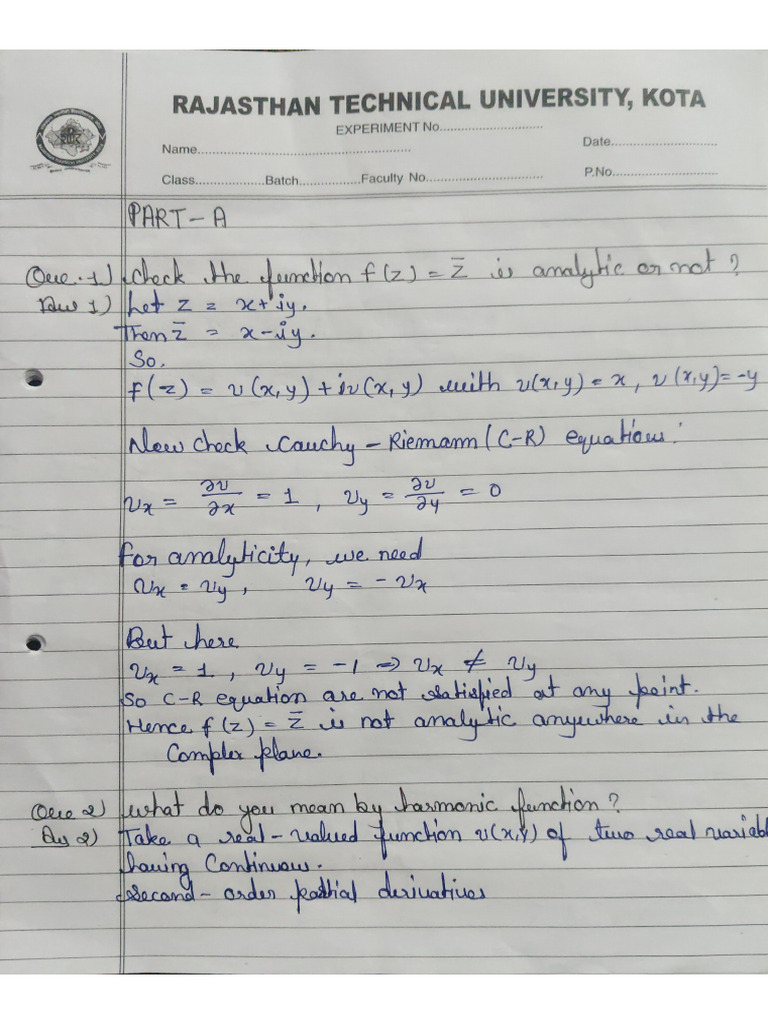 RAJASTHAN TECHNICAL UNIVERSITY, KOTA
EXPERIMENT No..............................
Name............................................................... Date..............................
Class....................Batch..................Faculty No.................................. P.No..............................
PART-A
Que.1) check the function f(z) = z̄ is analytic or not?
Ans 1) Let z = x+iy.
Then z̄ = x-iy.
So,
f(z) = u(x,y)+iv(x,y) with u(x,y)=x, v(x,y)=-y
Now check Cauchy-Riemann (C-R) equations:
ux = ∂u/∂x = 1, uy = ∂u/∂y = 0
for analyticity, we need
ux = vy, uy = -vx
But here
ux = 1, vy = -1 ⇒ ux ≠ vy
So C-R equation are not satisfied at any point.
Hence f(z) = z̄ is not analytic anywhere in the
Complex plane.
Que 2) what do you mean by harmonic function?
Ans 2) Take a real-valued function u(x,y) of two real variabl
having Continuous.
second-order partial derivatives